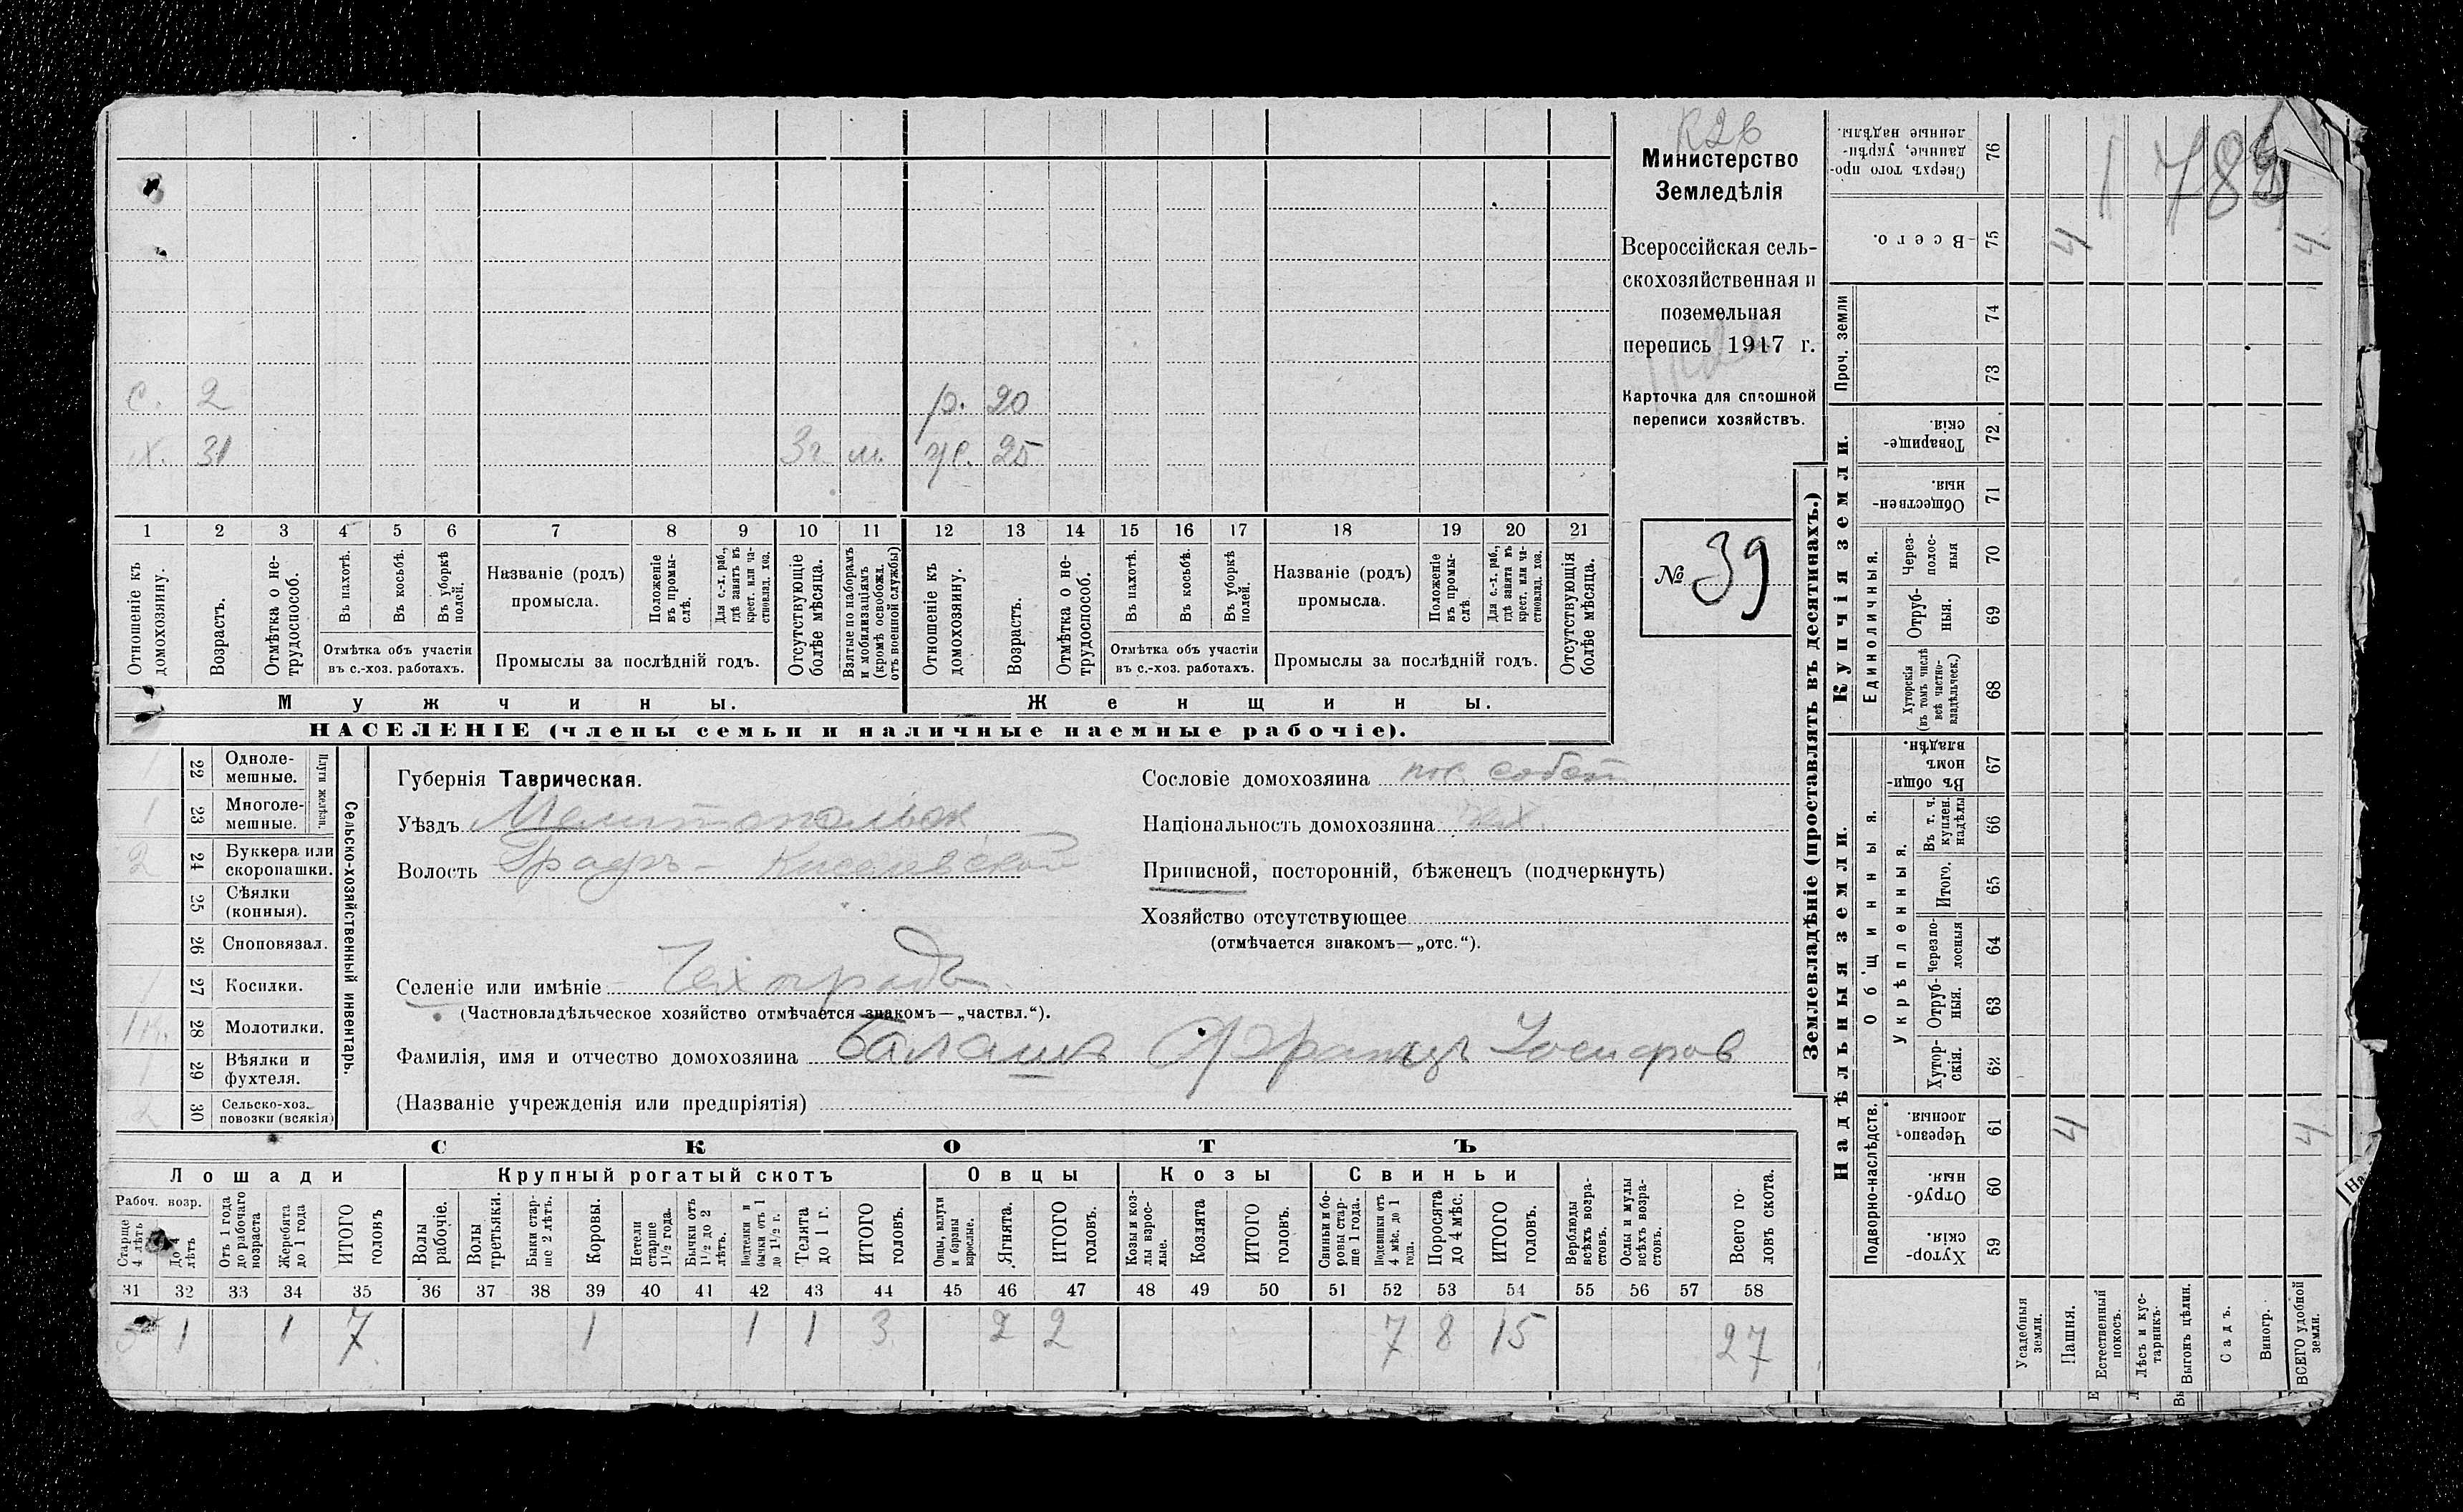 К26
Министерство
Земледѣлія
Всероссійская сель-
скохозяйственная и
поземельная
перепись 1917 г.
Карточка для сплошной
переписи хозяйствъ.
№ 39
с. 2 р. 20
х. 31 3г. м. ж. 25
1 2 3 4 5 6 7 8 9 10 11 12 13 14 15 16 17 18 19 20 21
Отношеніе къ домохозяину.
Возрастъ.
Отмѣтка о не-трудоспособ.
Въ пахотѣ.
Въ косьбѣ.
Въ уборкѣ полей.
Отмѣтка объ участіи
въ с.-хоз. работахъ.
Названіе (родъ)
промысла.
Положеніе въ промы-слѣ.
Для с.-х. раб., гдѣ занятъ въ крест. или ча-стновлад. хоз.
Промыслы за послѣдній годъ.
Отсутствующіе болѣе мѣсяца.
Взятые по наборамъ и мобилизаціямъ (кромѣ освобожд. отъ военной службы)
Отношеніе къ домохозяину.
Возрастъ.
Отмѣтка о не-трудоспособ.
Въ пахотѣ.
Въ косьбѣ.
Въ уборкѣ полей.
Отмѣтка объ участіи
въ с.-хоз. работахъ.
Названіе (родъ)
промысла.
Положеніе въ промы-слѣ.
Для с.-х. раб., гдѣ занята въ крест. или ча-стновлад. хоз.
Промыслы за послѣдній годъ.
Отсутствующія болѣе мѣсяца.
Мужчины.
Женщины.
НАСЕЛЕНІЕ (члены семьи и наличные наемные рабочіе).
Сельско-хозяйственный инвентарь.
Плуги желѣзн.
1 22 Однолемешные.
1 23 Многолемешные.
2 24 Буккера или скоропашки.
25 Сѣялки (конныя).
26 Сноповязал.
1 27 Косилки.
1 к. 28 Молотилки.
1 29 Вѣялки и фухтеля.
2 30 Сельско-хоз. повозки (всякія)
Губернія Таврическая.
Уѣздъ Мелитопольск
Волость Графъ-Киселевской
Селеніе или имѣніе Чехоградъ.
(Частновладѣльческое хозяйство отмѣчается знакомъ—„частвл.“).
Фамилія, имя и отчество домохозяина Балашъ Францъ Іосифов
(Названіе учрежденія или предпріятія)
Сословіе домохозяина пос. собст
Національность домохозяина чех.
Приписной, посторонній, бѣженец (подчеркнуть)
Хозяйство отсутствующее
(отмѣчается знакомъ—„отс.“).
СКОТЪ
Лошади
Крупный рогатый скотъ
Овцы
Козы
Свиньи
Рабоч. возр.
Старше 4 лѣтъ
До 4 лѣтъ
Отъ 1 года до рабочаго возраста
Жеребята до 1 года
ИТОГО головъ
Волы рабочіе.
Волы третьяки.
Быки стар-ше 2 лѣтъ.
Коровы.
Нетели старше 1½ года.
Бычки отъ 1½ до 2 лѣтъ.
Подтелки и бычки отъ 1 до 1½ г.
Телята до 1 г.
ИТОГО головъ.
Овцы, валухи и бараны взрослые.
Ягнята.
ИТОГО головъ.
Козы и коз-лы взрос-лые.
Козлята
ИТОГО головъ.
Свиньи и бо-ровы стар-ше 1 года.
Подсвинки отъ 4 мѣс. до 1 года.
Поросята до 4 мѣс.
ИТОГО головъ.
Верблюды всѣхъ возра-стовъ.
Ослы и мулы всѣхъ возра-стовъ.
Всего го-ловъ скота.
31 32 33 34 35 36 37 38 39 40 41 42 43 44 45 46 47 48 49 50 51 52 53 54 55 56 57 58
1 1 7 1 1 1 3 2 2 7 8 15 27
Землевладѣніе (проставлять въ десятинахъ.)
Надѣльныя земли.
Купчія земли.
Проч. земли
Подворно-наслѣдств.
Общинныя.
Укрѣпленныя.
Единоличныя.
1783
76 Сверхъ того про-данные, укрѣп-ленные надѣлы.
75 Всего. 4 4
74
73
72 Товарище-скія.
71 Обществен-ныя.
70 Через-полос-ныя
69 Отруб-ныя.
68 Хуторскія (въ томъ числѣ всѣ частно-владѣльческ.)
67 Въ общи-номъ владѣн.
66 Въ т. ч. куплен. надѣлы
65 Итого.
64 Черезпо-лосныя
63 Отруб-ныя.
62 Хутор-скія.
61 Черезпо-лосныя. 4 4
60 Отруб-ныя.
59 Хутор-скія.
Усадебныя земли.
Пашня.
Естественный покосъ.
Лѣсъ и кус-тарникъ.
Выгонъ цѣлин.
Садъ.
Виногр.
ВСЕГО удобной земли.